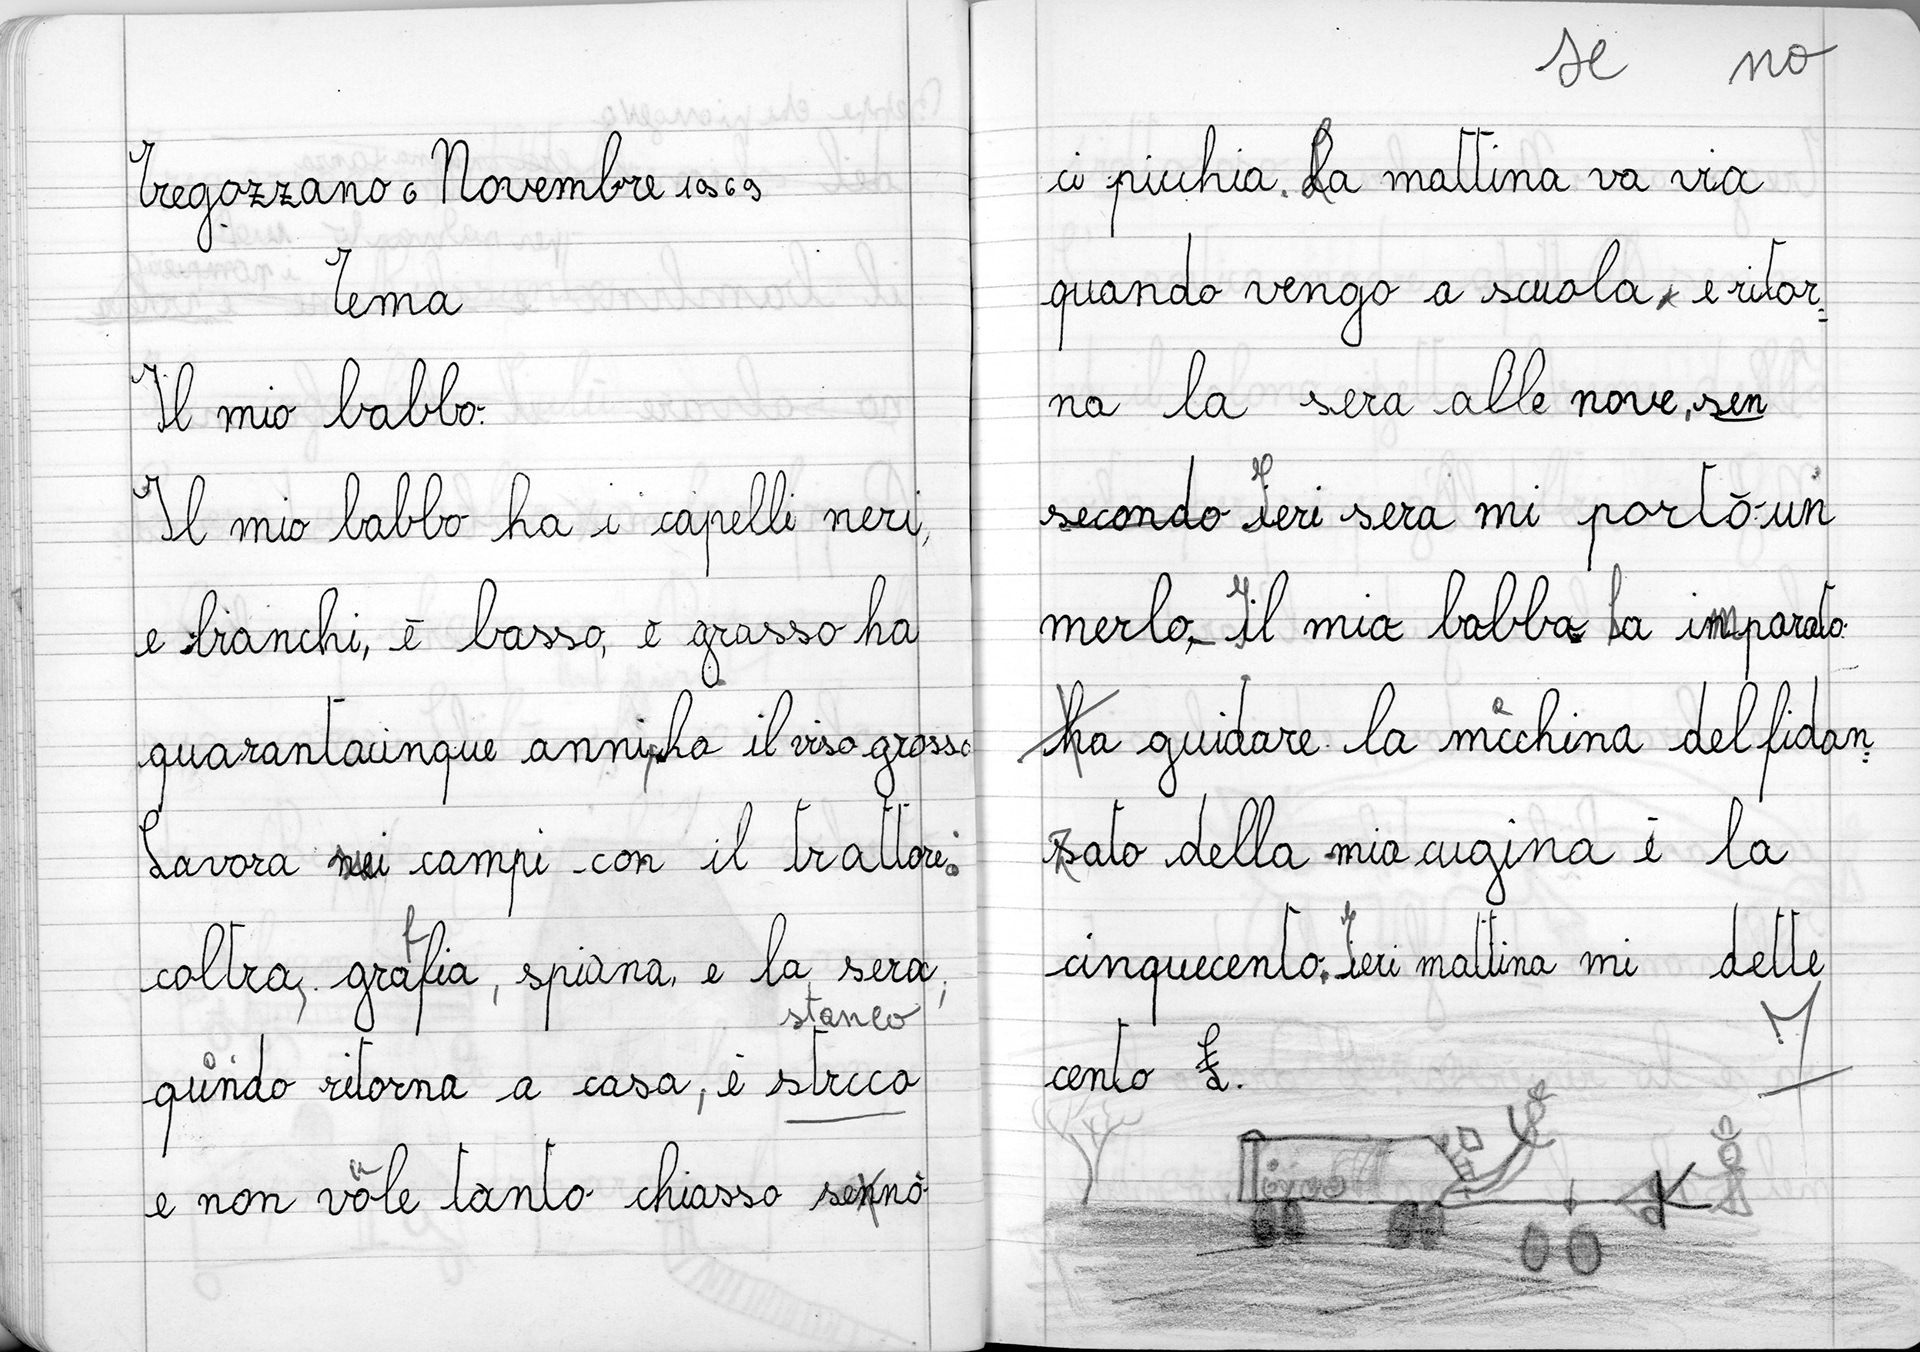 Tregozzano 6 Novembre 1969
Tema
Il mio babbo.
Il mio babbo ha i capelli neri,
e bianchi, è basso, è grasso ha
quarantacinque anni, ha il viso grosso
Lavora nei campi con il trattore.
coltra, graffia, spiana, e la sera,
stanco
quando ritorna a casa, è strcco
e non vuole tanto chiasso sennò
se no
ci picchia. La mattina va via
quando vengo a scuola, e ritor=
na la sera alle nove, sen
secondo Ieri sera mi portò un
merlo. Il mio babbo ha imparato
ha guidare la macchina del fidan=
zato della mia cugina è la
cinquecento. Ieri mattina mi dette
cento £.